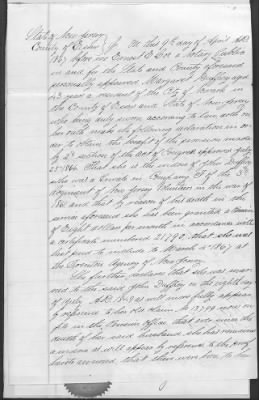 State of New Jersey
County of Essex } On this 9th day of April A.D.
1867 before me Ernest E. Coe a Notary Public
in and for the State and County aforesaid
personally appeared Margaret Duffey aged
43 years a resident of the City of Newark in
the County of Essex and State of New Jersey
who being duly sworn according to law, doth on
her oath make the following declaration in or-
der to obtain the benefit of the provision made
by 2d section of the Act of Congress approved July
25th 1866. That she is the widow of John Duffey
who was a Private in Company of the 3d
Regiment of New Jersey Volunteers in the war of
186 and that by reason of his death in ser-
vice aforesaid she has been granted a Pension
of Eight dollars per month in accordance with
a certificate numbered 21790, that she was
last paid to include to March 4th 1867 at
the Pension Agency of New Jersey
She further declares that she was mar-
ried to the said John Duffey on the eighth day
of July A.D. 1849 as will more fully appear
by reference to her old claim No. 13799 now on
file in the Pension Office that ever since the
death of her said husband, she has remained
a widow as will appear by reference to the proof
hereto annexed, that there were born to her